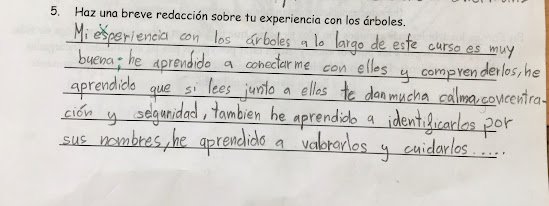 5. Haz una breve redacción sobre tu experiencia con los árboles.
Mi experiencia con los árboles a lo largo de este curso es muy
buena; he aprendido a conectarme con elles y comprenderlos, he
aprendido que si lees junto a ellos te dan mucha calma, concentra-
ción y seguridad, tambien he aprendido a identificarlos por
sus nombres, he aprendido a valorarlos y cuidarlos.....